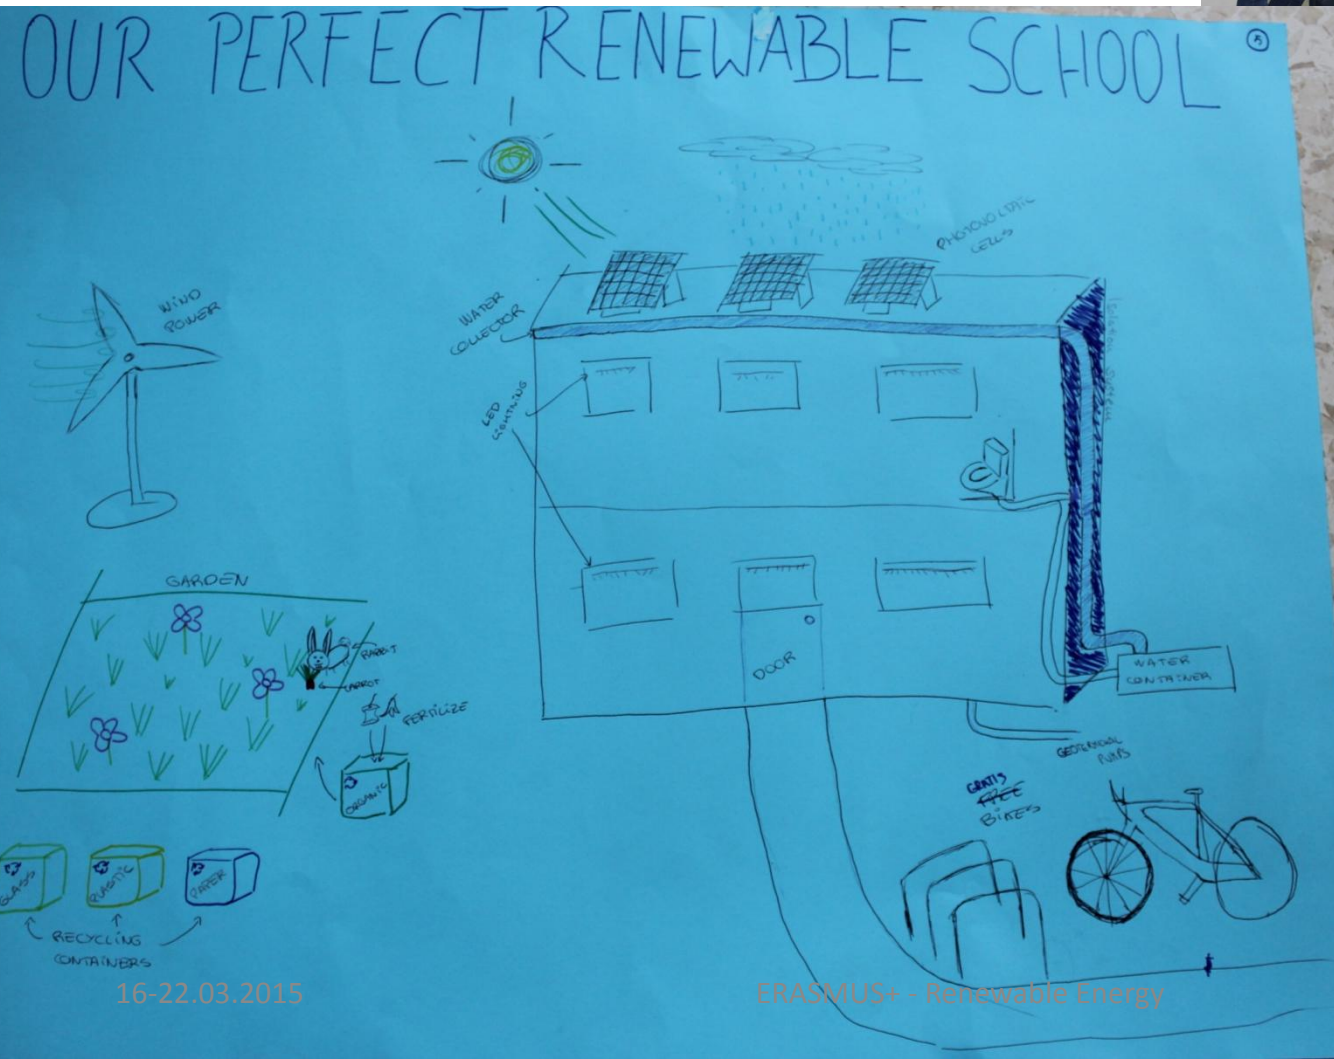 OUR PERFECT RENEWABLE SCHOOL
PHOTOVOLTAIC
CELLS
WIND
POWER
WATER
COLLECTOR
LED
LIGHTNING
GARDEN
RABBIT
CARROT
FERTILIZE
ORGANIC
DOOR
WATER
CONTAINER
GEOTERMAL
GRATIS
FREE
BIKES
GLASS
PLASTIC
PAPER
RECYCLING
CONTAINERS
16-22.03.2015
ERASMUS+ - Renewable Energy